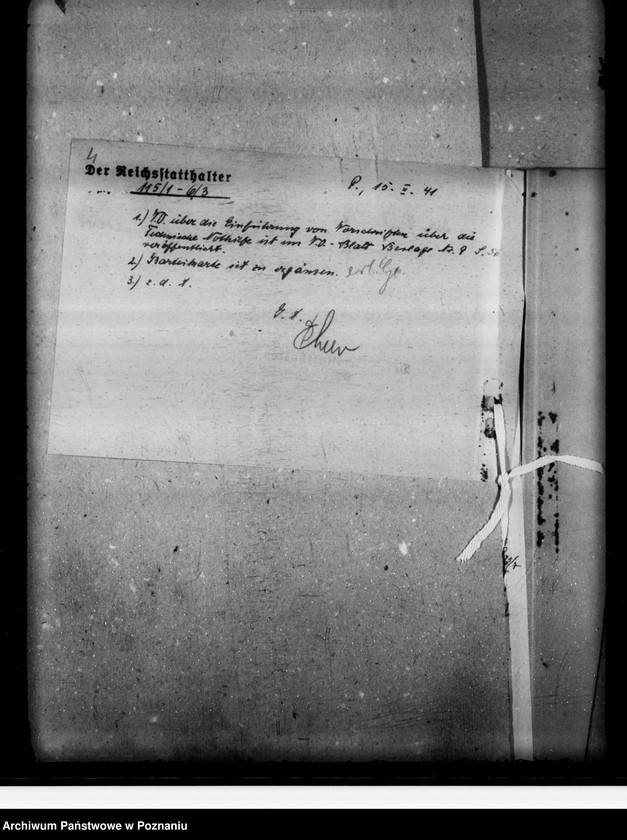 4
Der Reichsstatthalter
115/1 - 6/3
P., 15. II. 41
1.) V.O. über die Einführung von Vorschriften über die
Technische Nothilfe ist im V.O.-Blatt Beilage Nr. 9 S. 50
veröffentlicht.
2.) Karteikarte ist zu ergänzen. erl.
3.) z. d. A.
I. A.
Archiwum Państwowe w Poznaniu